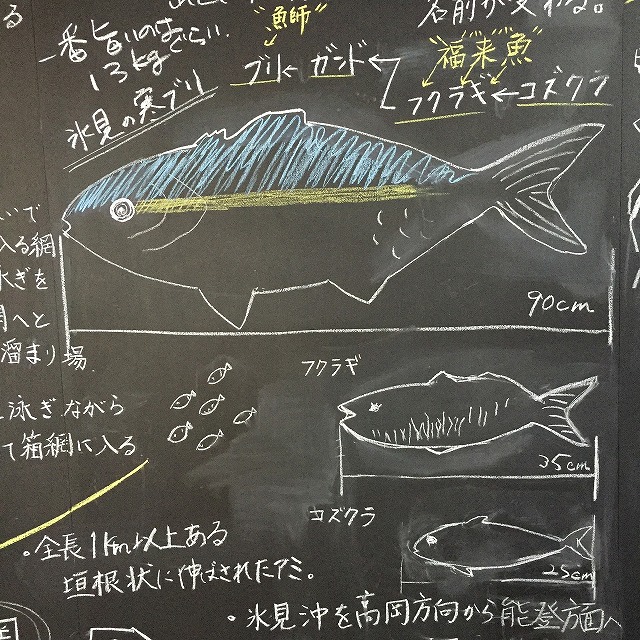 る
名前が変わる。
"魚師"
一番旨いのはぐらい。
13kg
ブリ←ガンド←
"福来魚"
フクラギ←コズクラ
氷見の寒ブリ
90cm
いで
入る網
泳ぎを
明へと
溜まり場
泳ぎながら
て箱網に入る
フクラギ
35cm
コズクラ
25cm
・全長1km以上ある
垣根状に伸ばされたアミ。
・氷見沖を高岡方向から能登方面へ